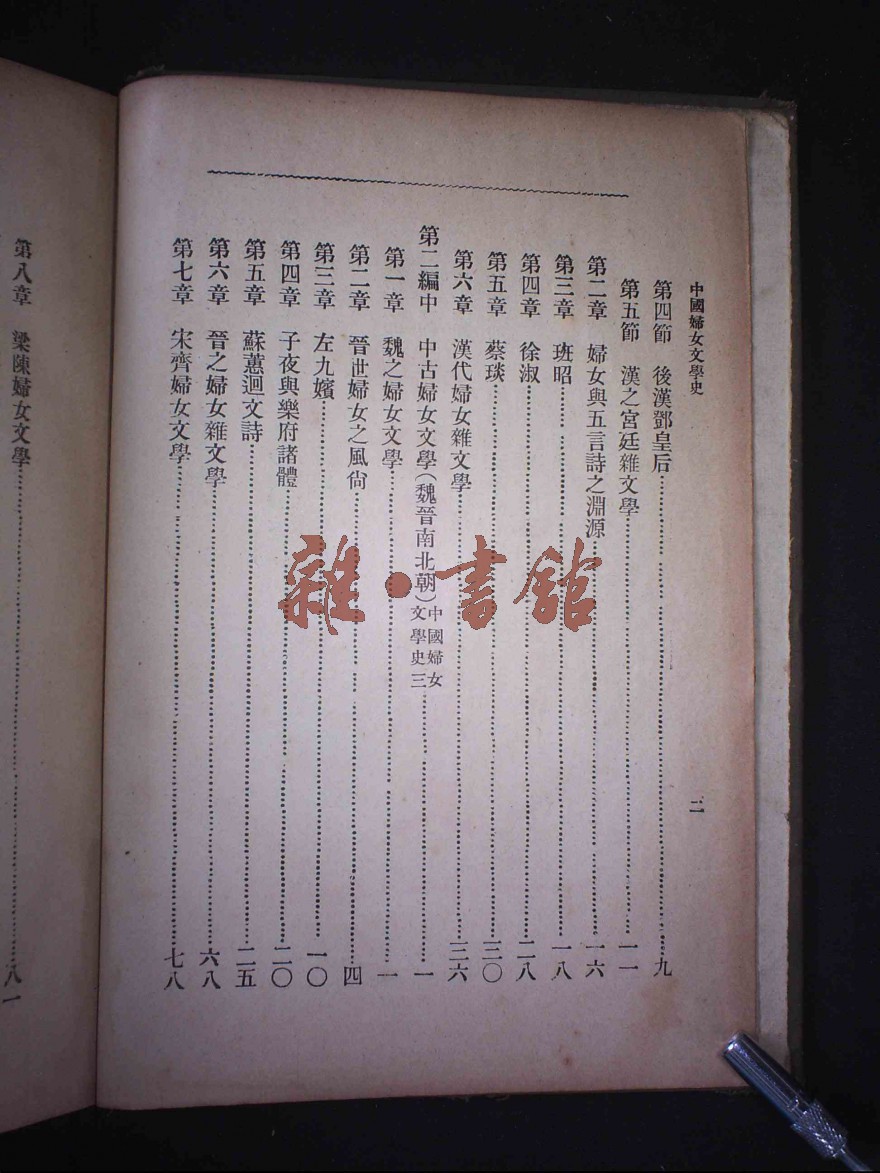 中國婦女文學史
二
第四節　後漢鄧皇后……九
第五節　漢之宮廷雜文學……一一
第二章　婦女與五言詩之淵源……一六
第三章　班昭……一八
第四章　徐淑……二八
第五章　蔡琰……三〇
第六章　漢代婦女雜文學……三六
第二編中　中古婦女文學（魏晉南北朝）中國婦女文學史三……一
第一章　魏之婦女文學……一
第二章　晉世婦女之風尙……四
第三章　左九嬪……一〇
第四章　子夜與樂府諸體……二〇
第五章　蘇蕙迴文詩……二五
第六章　晉之婦女雜文學……六八
第七章　宋齊婦女文學……七八
第八章　梁陳婦女文學……八一
雜·書館